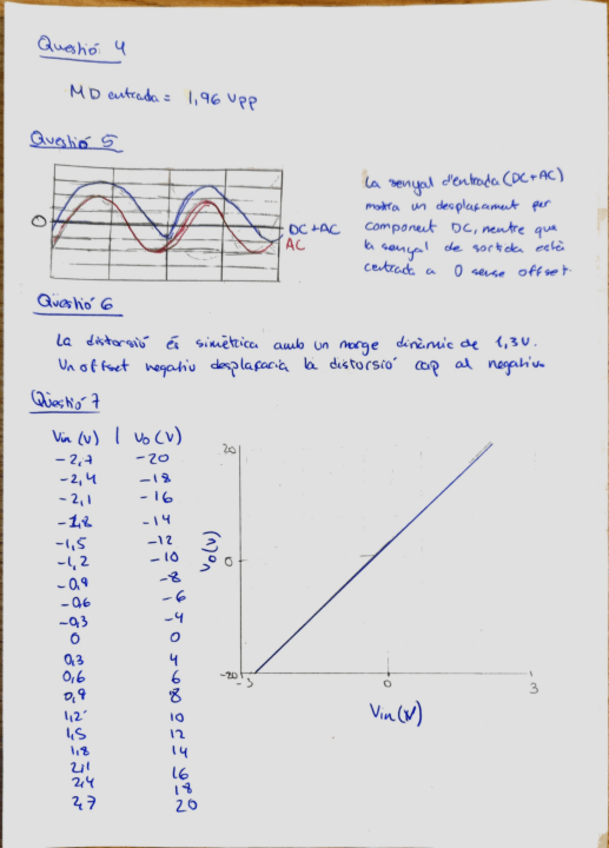 Questió 4
MD entrada = 1,96 Vpp
Questió 5
0
DC+AC
AC
La senyal d'entrada (DC+AC)
mostra un desplaçament per
component DC, mentre que
la senyal de sortida està
centrada a 0 sense offset.
Questió 6
La distorsió és simètrica amb un marge dinàmic de 1,3V.
Un offset negatiu desplaçaria la distorsió cap al negatiu
Questió 7
Vin (V) | Vo (V)
-2,7 -20
-2,4 -18
-2,1 -16
-1,8 -14
-1,5 -12
-1,2 -10
-0,9 -8
-0,6 -6
-0,3 -4
0 0
0,3 4
0,6 6
0,9 8
1,2 10
1,5 12
1,8 14
2,1 16
2,4 18
2,7 20
20
Vo (V)
0
-20
-3 0 3
Vin (V)